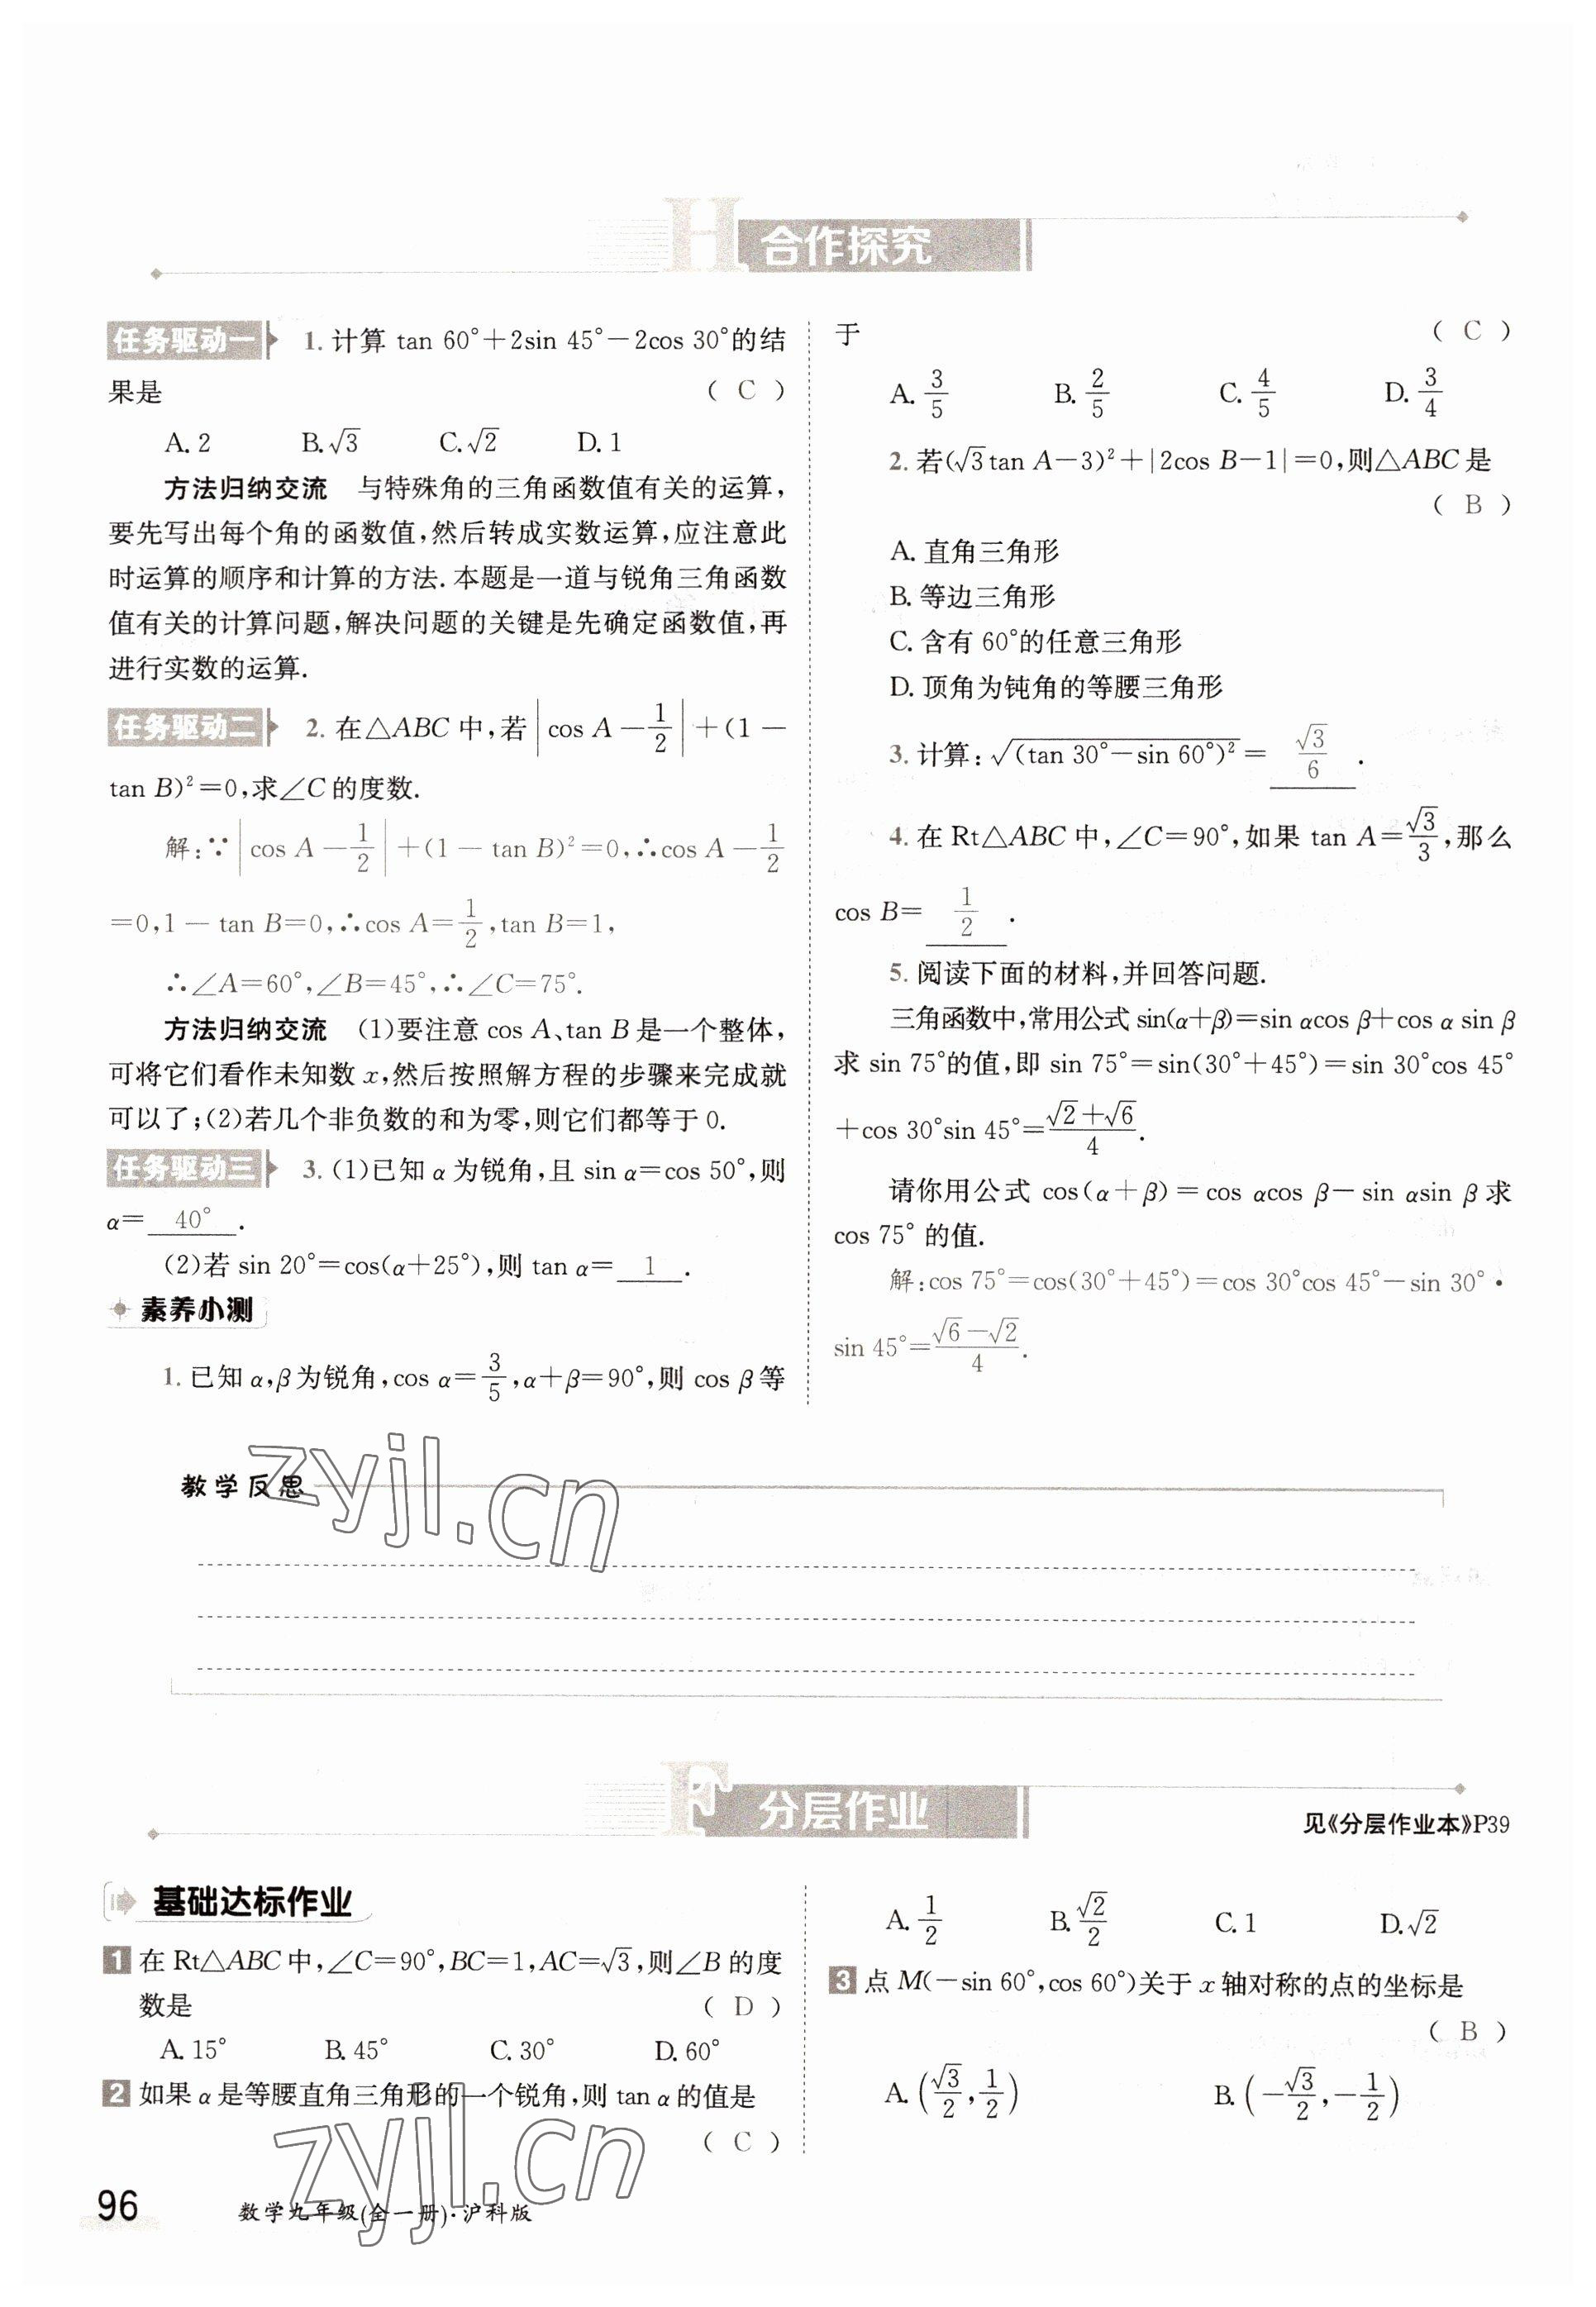 H 合作探究
任务驱动一 1. 计算 tan 60°+2sin 45°-2cos 30°的结
果是 ( C )
A. 2 B. √3 C. √2 D. 1
方法归纳交流 与特殊角的三角函数值有关的运算,
要先写出每个角的函数值,然后转成实数运算,应注意此
时运算的顺序和计算的方法. 本题是一道与锐角三角函数
值有关的计算问题,解决问题的关键是先确定函数值,再
进行实数的运算.
任务驱动二 2. 在△ABC 中,若|cos A-1/2|+(1-
tan B)²=0,求∠C 的度数.
解:∵|cos A-1/2|+(1-tan B)²=0,∴cos A-1/2
=0,1-tan B=0,∴cos A=1/2,tan B=1,
∴∠A=60°,∠B=45°,∴∠C=75°.
方法归纳交流 (1)要注意 cos A、tan B 是一个整体,
可将它们看作未知数 x,然后按照解方程的步骤来完成就
可以了;(2)若几个非负数的和为零,则它们都等于 0.
任务驱动三 3. (1)已知 α 为锐角,且 sin α=cos 50°,则
α= 40° .
(2)若 sin 20°=cos(α+25°),则 tan α= 1 .
素养小测
1. 已知 α,β 为锐角,cos α=3/5,α+β=90°,则 cos β 等
于 ( C )
A. 3/5 B. 2/5 C. 4/5 D. 3/4
2. 若(√3tan A-3)²+|2cos B-1|=0,则△ABC 是
( B )
A. 直角三角形
B. 等边三角形
C. 含有 60°的任意三角形
D. 顶角为钝角的等腰三角形
3. 计算:√(tan 30°-sin 60°)²= √3/6 .
4. 在 Rt△ABC 中,∠C=90°,如果 tan A=√3/3,那么
cos B= 1/2 .
5. 阅读下面的材料,并回答问题.
三角函数中,常用公式 sin(α+β)=sin αcos β+cos α sin β
求 sin 75°的值,即 sin 75°=sin(30°+45°)=sin 30°cos 45°
+cos 30°sin 45°=(√2+√6)/4.
请你用公式 cos(α+β)=cos αcos β-sin αsin β 求
cos 75° 的值.
解:cos 75°=cos(30°+45°)=cos 30°cos 45°-sin 30°·
sin 45°=(√6-√2)/4.
教学反思
zyjl.cn
F 分层作业
见《分层作业本》P39
基础达标作业
1 在 Rt△ABC 中,∠C=90°,BC=1,AC=√3,则∠B 的度
数是 ( D )
A. 15° B. 45° C. 30° D. 60°
2 如果 α 是等腰直角三角形的一个锐角,则 tan α 的值是
( C )
A. 1/2 B. √2/2 C. 1 D. √2
3 点 M(-sin 60°,cos 60°)关于 x 轴对称的点的坐标是
( B )
A. (√3/2,1/2) B. (-√3/2,-1/2)
zyjl.cn
96 数学九年级(全一册)·沪科版